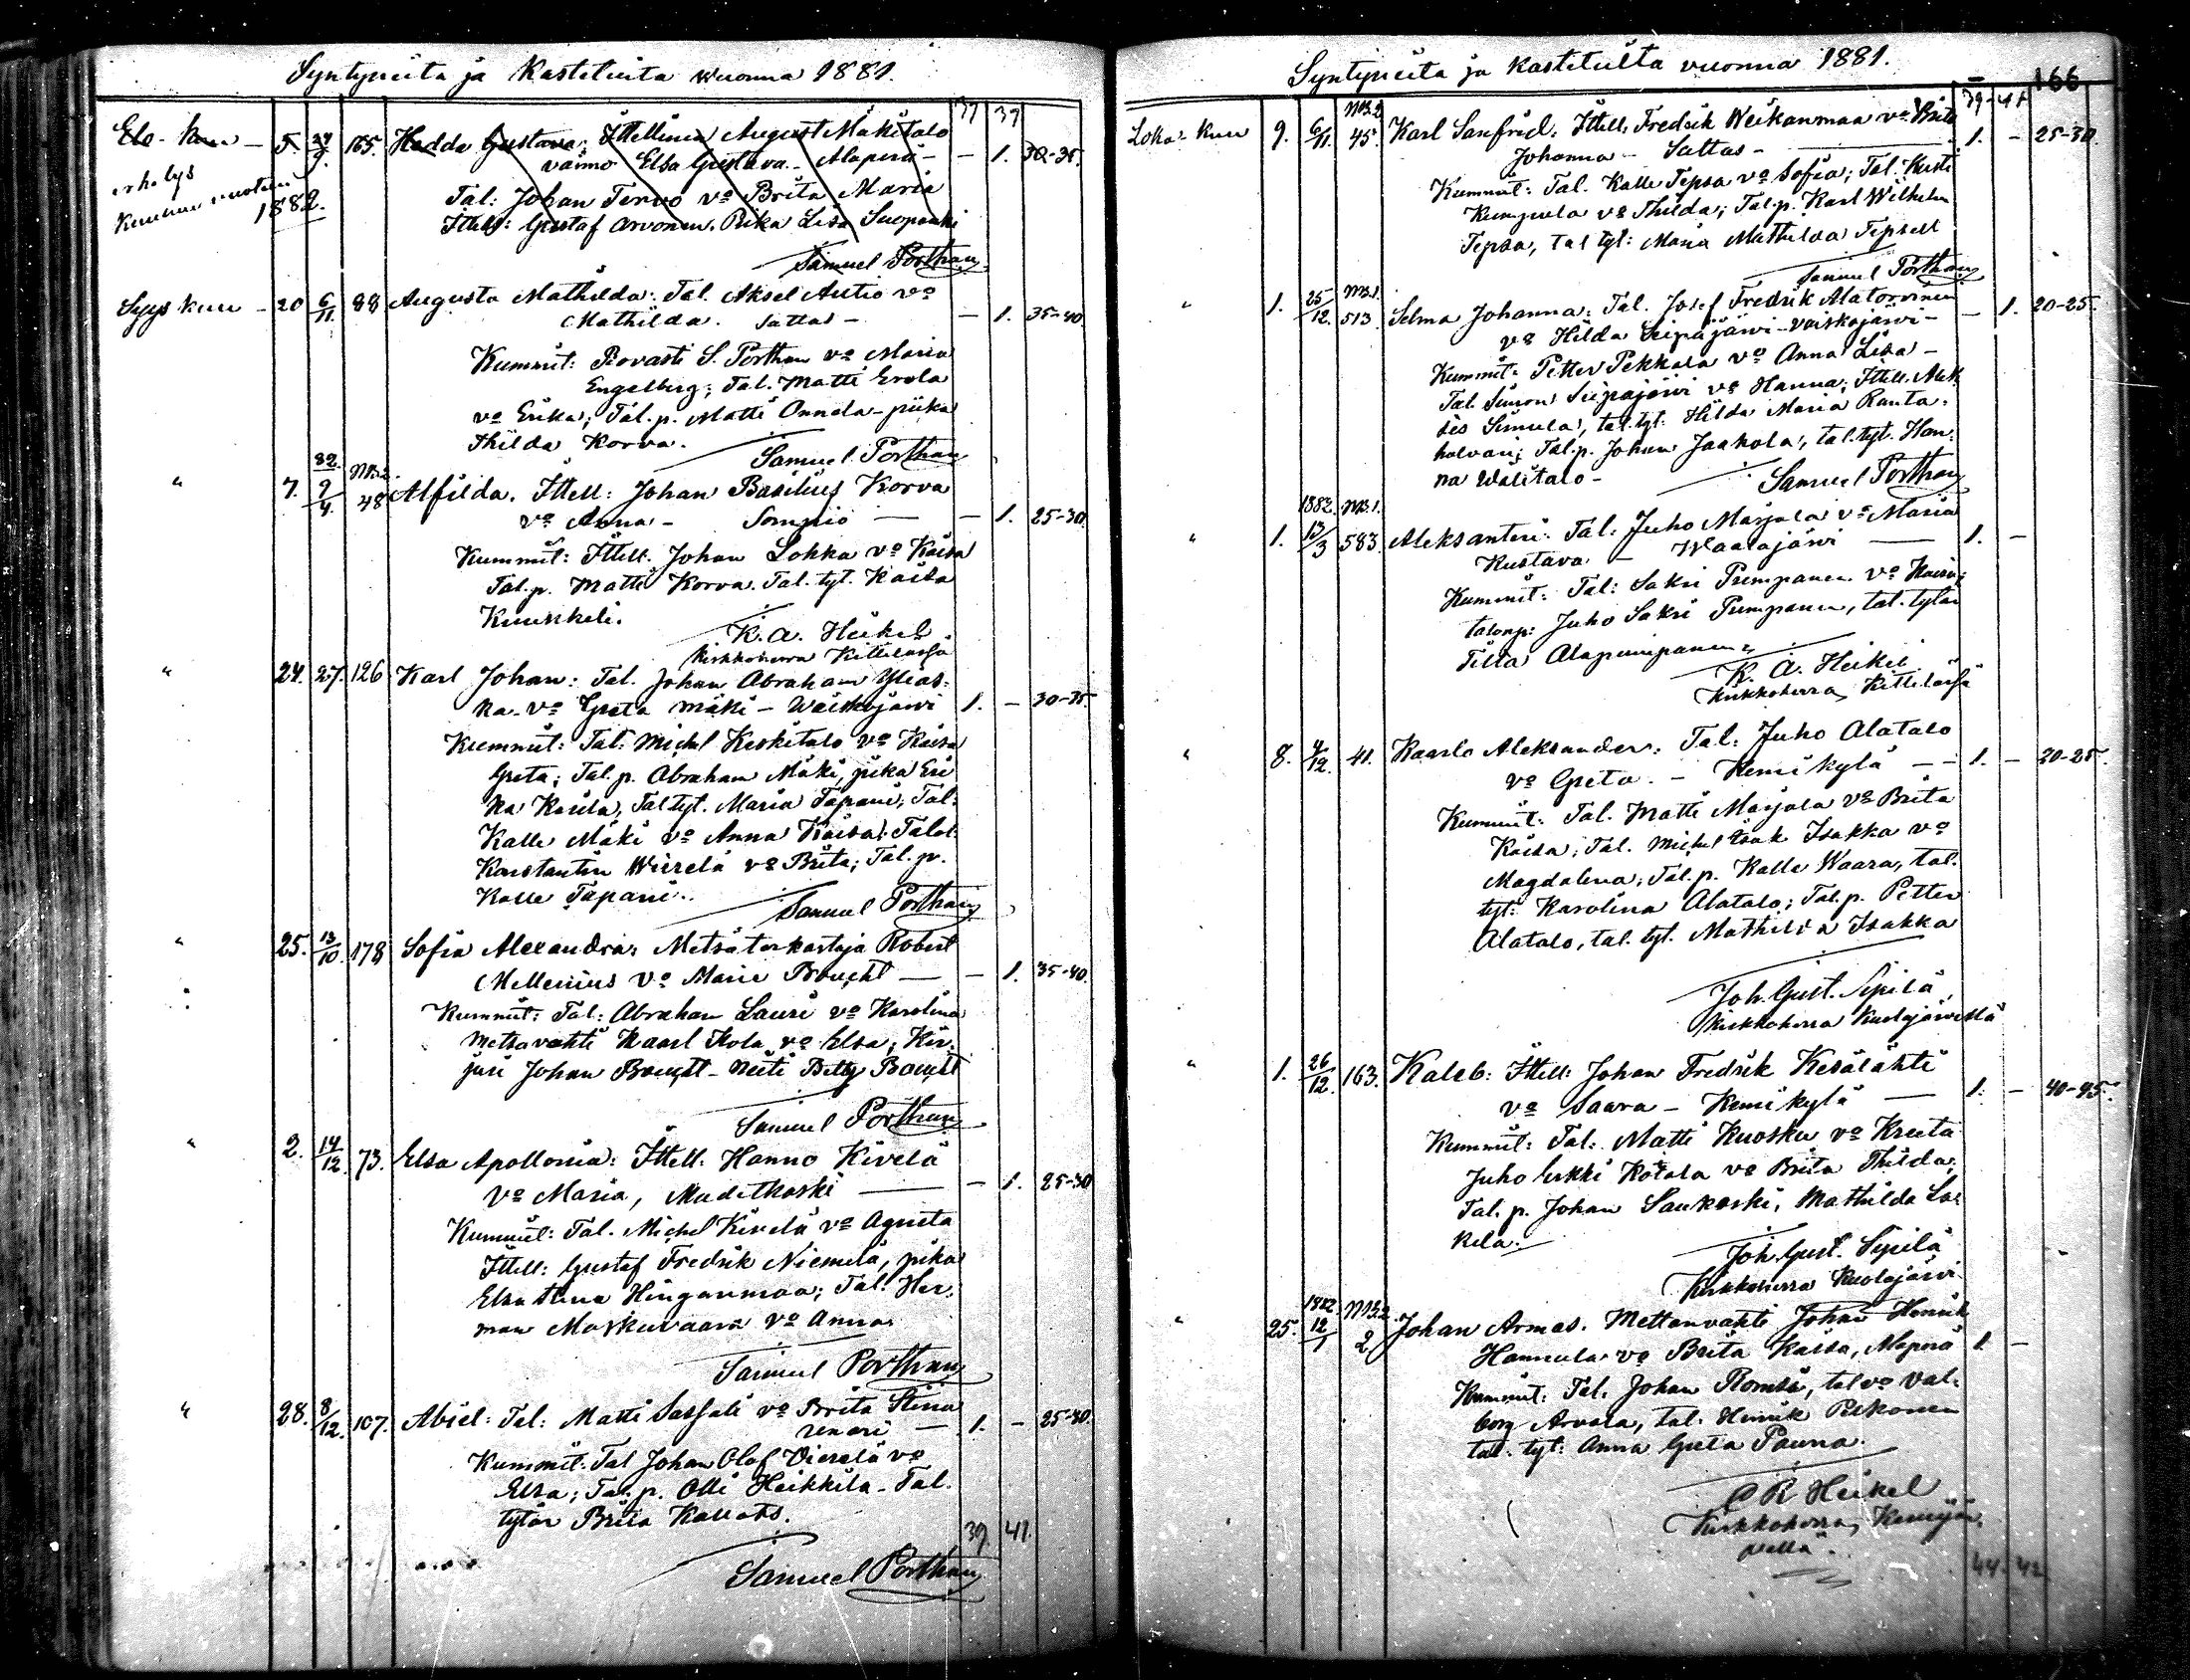 Syntyneitä ja Kastetuita wuonna 1881.
37 37
Elo-kuu - 5. 165. Hedda Gustava: Ittellinen August Mäkitalo
vaimo Elsa Gustava - Alaperä - - 1. 30-35.
erhetys
1882.
Tal: Johan Tervo vo Brita Maria
Ittell: Gustaf Arvonen. Piika Lisa Suopanki
Samuel Porthan
Syys kuu - 20 6/11. 88 Augusta Mathilda: Tal. Aksel Autio vo
Mathilda. Sattas - - 1. 35-40
Kummit: Rovasti S. Porthan vo Maria
Engelberg; Tal. Matti Erola
vo Erika; Tal.p. Matti Onnela - piika
Thilda Korva.
Samuel Porthan
82. NB.2.
" 7. 9/4. 48 Alfilda. Ittell: Johan Basilius Korva
vo Anna - Sompio - - 1. 25-30.
Kummit: Ittell. Johan Lokka vo Kaisa
Tal.p. Matti Korva. Tal. tyt. Kaisa
Kuukkeli.
K. A. Heikel
Kirkkoherra Kittilässä
" 24. 27. 126 Karl Johan: Tal. Johan Abraham Ylias-
ka. vo Greta Mäki - Waiskojärvi 1. - 30-35
Kummit: Tal: Michel Keskitalo vo Kaisa
Greta; Tal.p. Abraham Mäki, piika Eri
ka Karila, Tal tyt. Maria Tapani; Tal:
Kalle Mäki vo Anna Kaisa; Talol:
Konstantin Wierelä vo Brita; Tal. p.
Kalle Tapani.
Samuel Porthan
" 25. 13/10. 178 Sofia Alexandra: Metsätarkastaja Robert
Mellenius vo Maria Boucht - - 1. 35-40.
Kummit: Tal: Abraham Lauri vo Karolina
Metsavahti Kaarl Kola vo Elsa; Kir-
juri Johan Boucht - Neiti Betty Boucht
Samuel Porthan
" 2. 14/12. 73. Elsa Apollonia: Ittell: Hanno Kivelä
vo Maria, Madetkoski - - 1. 25-30
Kummit: Tal. Michel Kivelä vo Agusta
Ittell: Gustaf Fredrik Niemelä, piika
Elsa Stina Hinganmaa; Tal: Her-
man Moskuvaara vo Anna
Samuel Porthan
" 28. 8/12. 107. Abiel: Tal: Matti Sassali vo Brita Stina
1. - 25-30.
Kummit: Tal Johan Olof Vierelä vo
Elsa; Tal. p. Olli Heikkilä - Tal.
tytär Brita
39 41.
Samuel Porthan
Syntyneitä ja kastetuita vuonna 1881.
166
NB.2 39-41
Loka-kuu 9. 6/11. 45. Karl Sanfrid: Ittell. Fredrik Weikanmaa vo Brita
Johanna - Sattas - 1. - 25-30.
Kummit: Tal. Kalle Tepsa vo Sofia; Tal. Kusti
Kumpula vo Thilda; Tal.p. Karl Wilhelm
Tepsa, tal tyt: Maria Mathilda Tepsell
Samuel Porthan
NB.1.
" 1. 25/12. 513. Selma Johanna: Tal. Josef Fredrik Alatorvinen
vo Hilda Seipäjärvi - Vaiskojärvi - - 1. 20-25.
Kummit: Petter Pekkala vo Anna Lisa -
Tal. Simon Seipäjärvi vo Hanna; Ittell. Alek
sis Simula, tal.tyt. Hilda Maria Ranta-
halvari; Tal.p. Johan Jaakola, tal.tyt. Han-
na Wälitalo -
Samuel Porthan
1882. NB.1.
" 1. 13/3 583 Aleksanteri: Tal: Juho Marjala vo Maria
Kustava - Waalajärvi - 1. -
Kummit: Tal: Sakri Pumpanen vo Kaisa;
talonp: Juho Sakri Pumpanen, tal. tytär
Tilta Alapumpanen
K. A. Heikel
Kirkkoherra, Kittilässä
" 8. 4/12. 41. Kaarlo Aleksander: Tal: Juho Alatalo
vo Greta. - Kemikylä - - 1. - 20-25.
Kummit: Tal. Matti Marjala vo Brita
Kaisa; Tal. Michel Isak Isakka vo
Magdalena; Tal.p. Kalle Waara, tal.
tyt: Karolina Alatalo; Tal.p. Petter
Alatalo, tal. tyt. Mathilda Isakka
Joh. Gust. Sipilä
Kirkkoherra Kuolajärvellä
" 1. 26/12. 163. Kaleb: Ittell: Johan Fredrik Kesälahti
vo Saara - Kemikylä - 1. - 40-45.
Kummit: Tal: Matti Kuosku vo Kreeta
Juho Erkki Kotala vo Brita Thilda;
Tal. p. Johan Saukoski, Mathilda Lak
kela.
Joh. Gust. Sipilä
Kirkkoherra Kuolajärvi
1882. NB.2.
" 25. 12/1 2. Johan Armas. Mettanvahti Johan Henrik
Hannula vo Brita Kaisa, Alaperä 1. -
Kummit: Tal. Johan Romsi, tal vo Val-
borg Arvola, tal: Henrik Pekonen
tal. tyt: Anna Greta Pauna.
Heikel
Kirkkoherra, Kemijär-
vellä.
44. 42